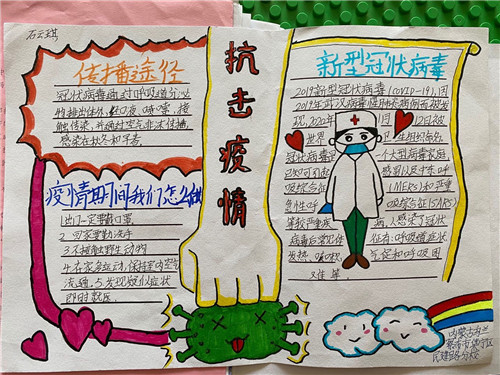 石云琪
传播途径
冠状病毒通过呼吸道分泌
物排出体外,经口液、喷嚏、接
触传染,并通过空气飞沫传播,
感染在秋冬和早春
疫情期间我们怎么做
1.出门一定要戴口罩
2.回家要勤洗手
3.不接触野生动物
4.在家多运动,保持室内空气
流通,5.发现疑似症状
即时就医。
抗击疫情
新型冠状病毒
2019新型冠状病毒(COVID-19),因
2019年武汉病毒性肺炎病例而被发
现,2020年1月12日被
世界卫生组织命名
冠状病毒是一个大型病毒家庭
已知可引起感冒以及中东呼
吸综合征(MERS)和严重
急性呼吸综合征(SARS)
等较严重疾病,人感染了冠状
病毒后常见体征有:呼吸道症状
发热、咳嗽、气促和呼吸困
难等。
内蒙古
民建路分校